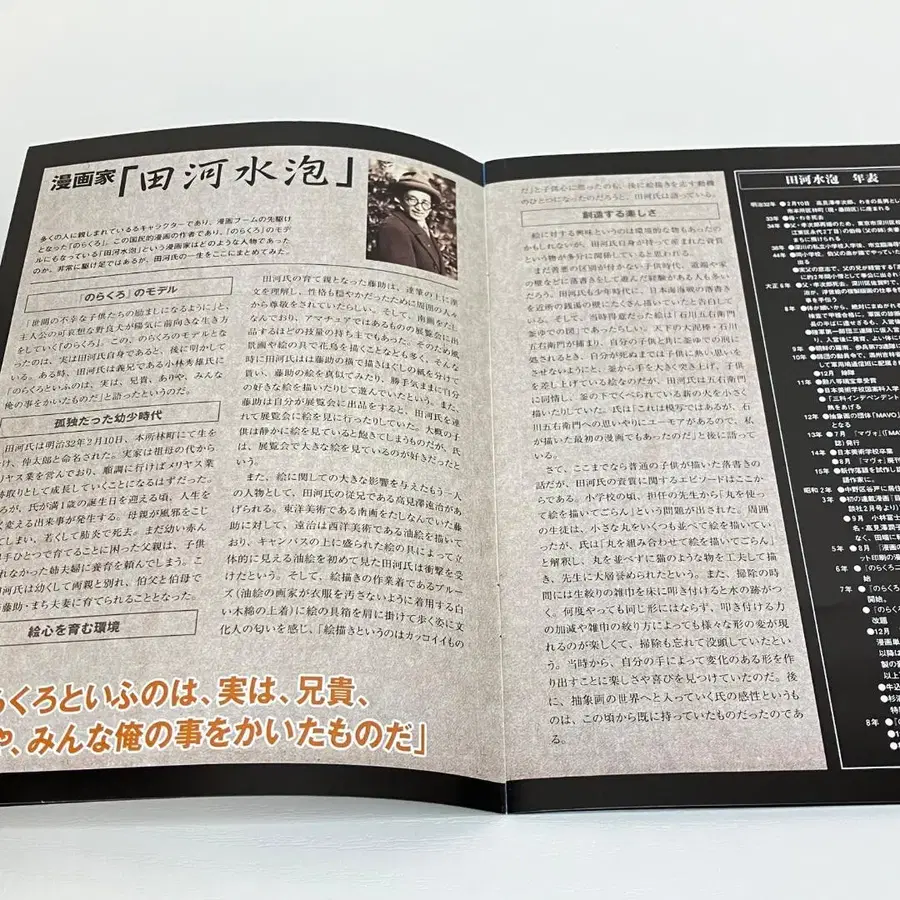 漫画家「田河水泡」
多くの人に親しまれているキャラクターであり、漫画ブームの先駆け
となった『のらくろ』。この国民的漫画の作者であり、『のらくろ』のモデ
ルにもなっている『田河水泡』という漫画家はどのような人物であった
のか。非常に駆け足ではあるが、田河氏の一生をここにまとめてみた。
『のらくろ』のモデル
「世間の不幸な子供たちの励ましになるように」と、
主人公の可哀想な野良犬が陽気に前向きな生き方
をしていく『のらくろ』。この、のらくろのモデルとな
ったのは、実は田河氏自身であると、後に明かして
いる。ある時、田河氏は義兄である小林秀雄氏に
「のらくろといふのは、実は、兄貴、ありや、みんな
俺の事をかいたものだ」と語ったというのだ。
孤独だった幼少時代
田河氏は明治32年2月10日、本所林町にて生を
け、仲太郎と命名された。実家は祖母の代から
リヤス業を営んでおり、順調に行けばメリヤス業
跡取りとして成長していくことになるはずだった。
ろが、氏が満1歳の誕生日を迎える頃、人生を
く変える出来事が発生する。母親が風邪をこじ
てしまい、若くして肺炎で死去。まだ幼い赤ん
手ひとつで育てることに困った父親は、子供
れなかった姉夫婦に養育を頼んでしまう。
河氏は幼くして両親と別れ、伯父と伯母で
藤助・まち夫妻に育てられることとなった。
絵心を育む環境
田河氏の育て親となった藤助は、達筆の上に漢
文を理解し、性格も穏やかだったために周囲の人み
から尊敬をされていたらしい。そして、南画をたし
なんでおり、アマチュアではあるものの展覧会に出
品するほどの技量の持ち主でもあった。そのため風
景画や絵の具で花鳥を描くことなども多く、そんな
時に田河氏はは藤助の横で描きはぐしの紙を分けて
貰い、藤助の絵を真似てみたり、勝手気ままに自分
の好きな絵を描いたりして遊んでいたという。また、
藤助は自分が展覧会に出品をすると、田河氏を連
れて展覧会に絵を見に行ったりしていた。大概の子
供は静かに絵を見ていると飽きてしまうものだが、氏
は、展覧会で大きな絵を見ているのが好きだったと
いう。
また、絵に関しての大きな影響を与えたもう一人
の人物として、田河氏の従兄である高見澤遠治があ
げられる。東洋美術である南画をたしなんでいた藤
助に対して、遠治は西洋美術である油絵を描いて
おり、キャンバスの上に盛られた絵の具によって立
体的に見える油絵を初めて見た田河氏は衝撃を受
けたという。そして、絵描きの作業着であるブルー
ズ(油絵の画家が衣服を汚さないように着用する白
い木綿の上着)に絵の具箱を肩に掛けて歩く姿に文
化人の匂いを感じ、「絵描きというのはカッコイイもの
らくろといふのは、実は、兄貴、
や、みんな俺の事をかいたものだ」
だ」と子供心に思ったのも、後に絵描きを志す動機
のひとつになったのだろうと、田河氏は語っている。
創造する楽しさ
絵に対する興味というのは環境的な物もあったの
かもしれないが、田河氏自身が持って産まれた資質
という物が多分に関係していると思われる。
まだ善悪の区別が付かない子供時代、道端や家
の壁などに落書きをして遊んだ経験がある人も多い
だろう。田河氏も少年時代に、日本海海戦の落書き
を近所の銭湯の壁にたくさん描いていたと告白して
いる。そして、当時得意だった絵は「石川五右衛門
釜ゆでの図」であったらしい。天下の大泥棒・石川
五右衛門が捕まり、自分の子供と共に釜ゆでの刑に
処されるとき、自分が死ぬまでは子供に熱い思いを
させないようにと、釜から手を大きく突き上げ、子供
を差し上げている絵なのだが、田河氏は五右衛門に
同情し、釜の下でくべられている薪の火を小さく
描いたりしていた。氏は「これは模写ではあるが、石
川五右衛門への思いやりにユーモアがあるので、私
が描いた最初の漫画でもあったのだ」と後に語って
いる。
さて、ここまでなら普通の子供が描いた落書きの
話だが、田河氏の資質に関するエピソードはここか
らである。小学校の頃、担任の先生から「丸を使っ
て絵を描いてごらん」という問題が出された。周囲
の生徒は、小さな丸をいくつも並べて絵を描いてい
ったが、氏は「丸を組み合わせて絵を描いてごらん」
と解釈し、丸を並べずに猫のような物を工夫して描
き、先生に大層誉められたという。また、掃除の時
間には生絞りの雑巾を床に叩き付けると水の跡がつ
く。何度やっても同じ形にはならず、叩き付ける力
の加減や雑巾の絞り方によっても様々な形の変が現
れるのが楽しくて、掃除も忘れて没頭していたとい
う。当時から、自分の手によって変化のある形を作
り出すことに楽しさや喜びを見つけていたのだ。後
に、抽象画の世界へと入っていく氏の感性というも
のは、この頃から既に持っていたものだったのであ
る。
田河水泡 年表
明治32年 ●2月10日
33年 ●母・わき死去
34年
36年 ●深川の私立小学校入学後、市立臨海
44年 ●同小学校
大正6年
8年
9年 ●朝鮮の羅南
10年
●12月 除隊
11年 ●勲八等瑞宝章受賞
●日本美術学校図案科入学
●「三科インデペンデント
熱をあげる
12年 ●抽象画の団体「MAVO」
となる
13年 ●7月 「マヴォ」(「MAV
誌)発行
14年 ●日本美術学校卒業
●8月 「マヴォ」廃刊
15年 ●新作落語を試作し
語作家に。
昭和2年 ●中野区谷戸に居住
3年 ●初の連載漫画「目
談社2月号より)
●9月 小林富士
名・高見澤潤子
なく、田端に
5年 ●8月 「漫画の
ット印刷の漫
6年 ●「のらくろ二
始
7年
開始。
●「のらく
改題
●12月
漫画単
以降は
製の豪
以上
●牛込
特
8年 ●「の